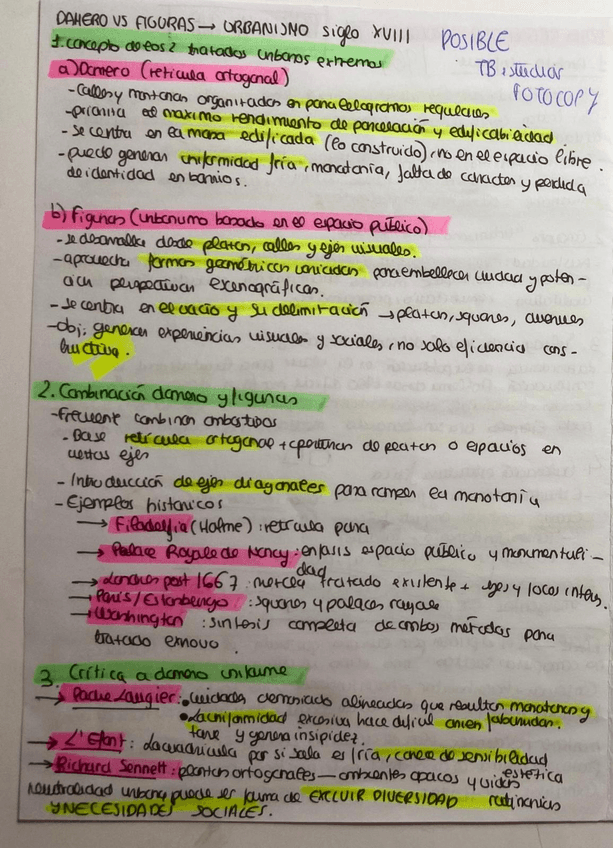 DAMERO VS FIGURAS → URBANISMO siglo XVIII
POSIBLE
TB estudiar
FOTOCOPY
1. concepto de los 2 tratados urbanos extremos
a) Damero (retícula ortogonal)
- Calles y manzanas organizadas en paralelogramos regulares
- prioriza el maximo rendimiento de parcelación y edificabilidad
- se centra en la masa edificada (lo construido), no en el espacio libre.
- puede generar uniformidad fría, monotonía, falta de caracter y perdida
de identidad en barrios.
b) Figuras (urbanismo basado en el espacio público)
- se desarrolla desde plazas, calles y ejes visuales.
- aprovecha formas geométricas variadas para embellecer ciudad y poten-
ciar perspectivas escenográficas.
- se centra en el vacío y su delimitación → plazas, squares, avenues
- obj: generar experiencias visuales y sociales, no solo eficiencia cons-
tructiva.
2. Combinación damero y figuras
- Frecuente combinar ambos tipos
- Base retícula ortogonal + aperturas de plazas o espacios en
ciertos ejes
- Introducción de ejes diagonales para romper la monotonía
- Ejemplos históricos
→ Filadelfia (Holme): retícula pura
→ Palace Royale de Nancy: enfasis espacio público y monumentali-
dad
→ Londres post 1667: mezcla tratado existente + ejes y focos
→ París / Estrasburgo: squares y palaces royale
→ Washington: síntesis completa de ambos métodos para
tratado exnovo.
3. Crítica a damero uniforme
→ Padre Laugier: ciudades demasiado alineadas que resultan monotonas y
• La uniformidad excesiva hace dificil
y genera insipidez.
→ L'Efant: La cuadricula por si sola es fría, carece de sensibilidad
estetica
→ Richard Sennett: plantas ortogonales — ambientes opacos y
rutinarios
neutralidad urbana puede ser forma de EXCLUIR DIVERSIDAD
Y NECESIDADES SOCIALES.